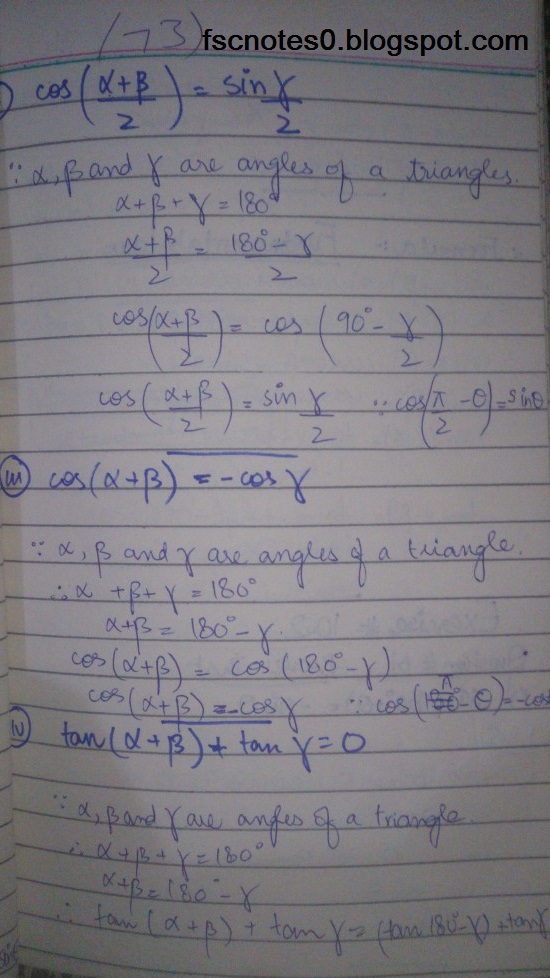 (73) fscnotes0.blogspot.com
) cos(α+β/2) = sin γ/2
∵ α, β and γ are angles of a triangles.
α+β+γ = 180°
α+β/2 = 180°-γ/2
cos(α+β/2) = cos (90° - γ/2)
cos(α+β/2) = sin γ/2 ∵ cos(π/2 - θ) = sinθ
(iii) cos(α+β) = -cos γ
∵ α, β and γ are angles of a triangle.
∴ α +β+γ = 180°
α+β = 180° - γ.
cos(α+β) = cos (180° - γ)
cos(α+β) = -cos γ ∵ cos(π - θ) = -cos
(iv) tan(α+β) + tan γ = 0
∵ α, β and γ are angles of a triangle.
∴ α+β+γ = 180°
α+β = 180° - γ
∴ tan(α+β) + tan γ = (tan 180° - γ) + tan γ